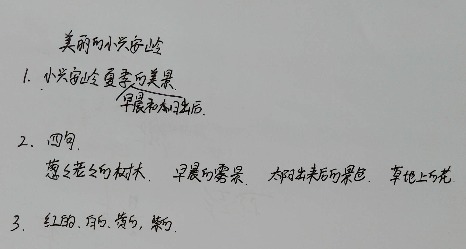 美丽的小兴安岭
1. 小兴安岭夏季的美景.
早晨和太阳出后.
2. 四句.
葱々茏々的树木. 早晨的雾景. 太阳出来后的景色. 草地上的花.
3. 红的、白的、黄的, 紫的.